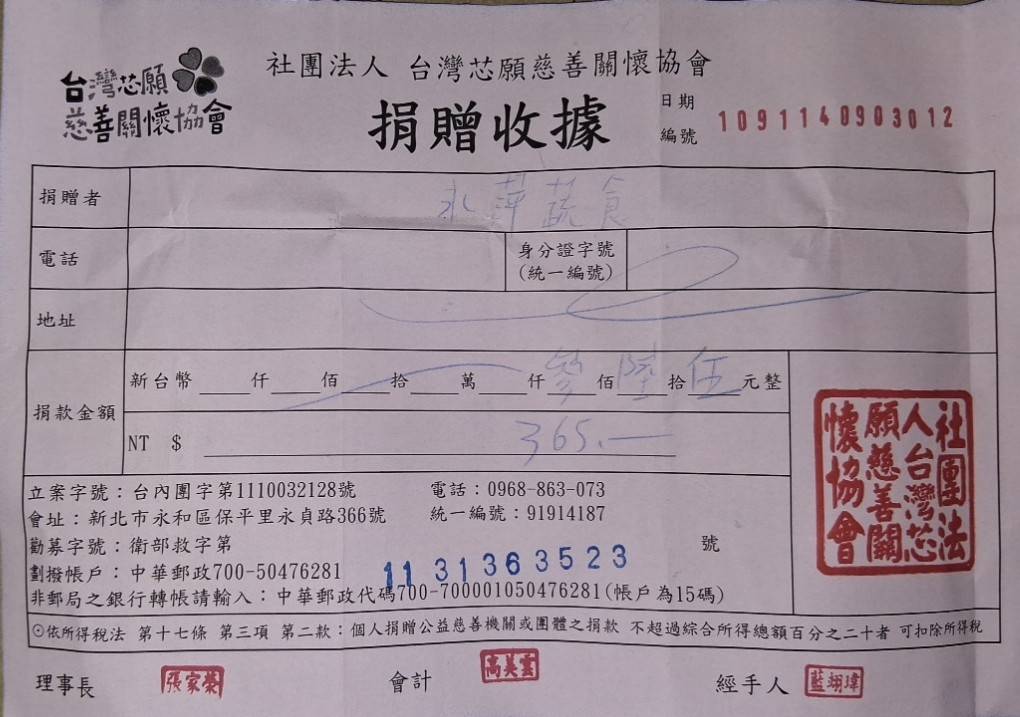 台灣芯願
慈善關懷協會
社團法人 台灣芯願慈善關懷協會
捐贈收據
日期
編號
1091140903012
捐贈者 永萍蔬食
電話 身分證字號
(統一編號)
地址
捐款金額 新台幣 仟 佰 拾 萬 仟 參 佰 陸 拾 伍 元整
NT $ 365.—
立案字號：台內團字第1110032128號 電話：0968-863-073
會址：新北市永和區保平里永貞路366號 統一編號：91914187
勸募字號：衛部救字第 1131363523 號
劃撥帳戶：中華郵政700-50476281
非郵局之銀行轉帳請輸入：中華郵政代碼700-700001050476281(帳戶為15碼)
社團法人台灣芯願慈善關懷協會
⊙依所得稅法 第十七條 第三項 第二款：個人捐贈公益慈善機關或團體之捐款 不超過綜合所得總額百分之二十者 可扣除所得稅
理事長 張家榮 會計 高美雲 經手人 藍翊瑋